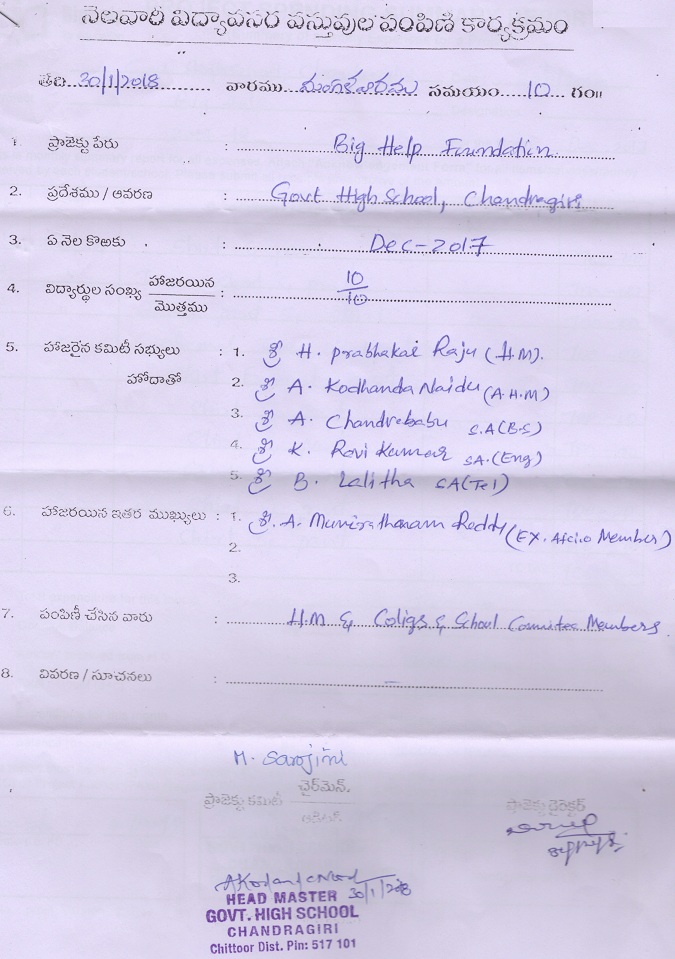 నెలవారి విద్యావసర వస్తువుల పంపిణి కార్యక్రమం
తేది 30/1/2018 వారము మంగళవారము సమయం 10 గం॥
1. ప్రాజెక్టు పేరు : Big Help Foundation
2. ప్రదేశము / ఆవరణ : Govt High School, Chandragiri
3. ఏ నెల కొఱకు : Dec-2017
4. విద్యార్థుల సంఖ్య హాజరయిన / మొత్తము : 10 / 10
5. హాజరైన కమిటీ సభ్యులు : 1. శ్రీ H. Prabhakar Raju (H.M).
హోదాతో 2. శ్రీ A. Kodhanda Naidu (A.H.M)
3. శ్రీ A. Chandrababu S.A(B.S)
4. శ్రీ K. Ravi Kumar SA.(Eng)
5. శ్రీ B. Lalitha SA(Tel)
6. హాజరయిన ఇతర ముఖ్యులు : 1. శ్రీ. A. Munirathanam Reddy (EX. Member)
2.
3.
7. పంపిణీ చేసిన వారు : H.M & Coligs & School Committee Members
8. వివరణ / సూచనలు : –
M. Sarojini
ప్రాజెక్టు కమిటీ చైర్‌మెన్.
ప్రాజెక్టు డైరెక్టర్
30/1/2018
HEAD MASTER
GOVT. HIGH SCHOOL
CHANDRAGIRI
Chittoor Dist. Pin: 517 101